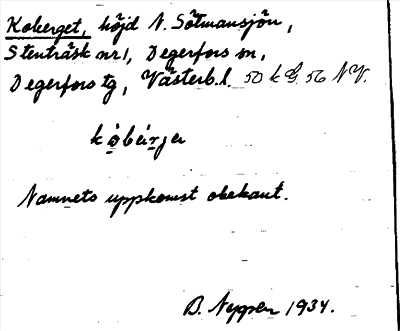 Koberget, höjd N. Sötmansjön,
Stenträsk nr 1, Degerfors sn,
Degerfors tg, Västerb. l. 50 k G. 56 NV.
kòbär̀jə
Namnets uppkomst obekant.
B. Nygren 1934.